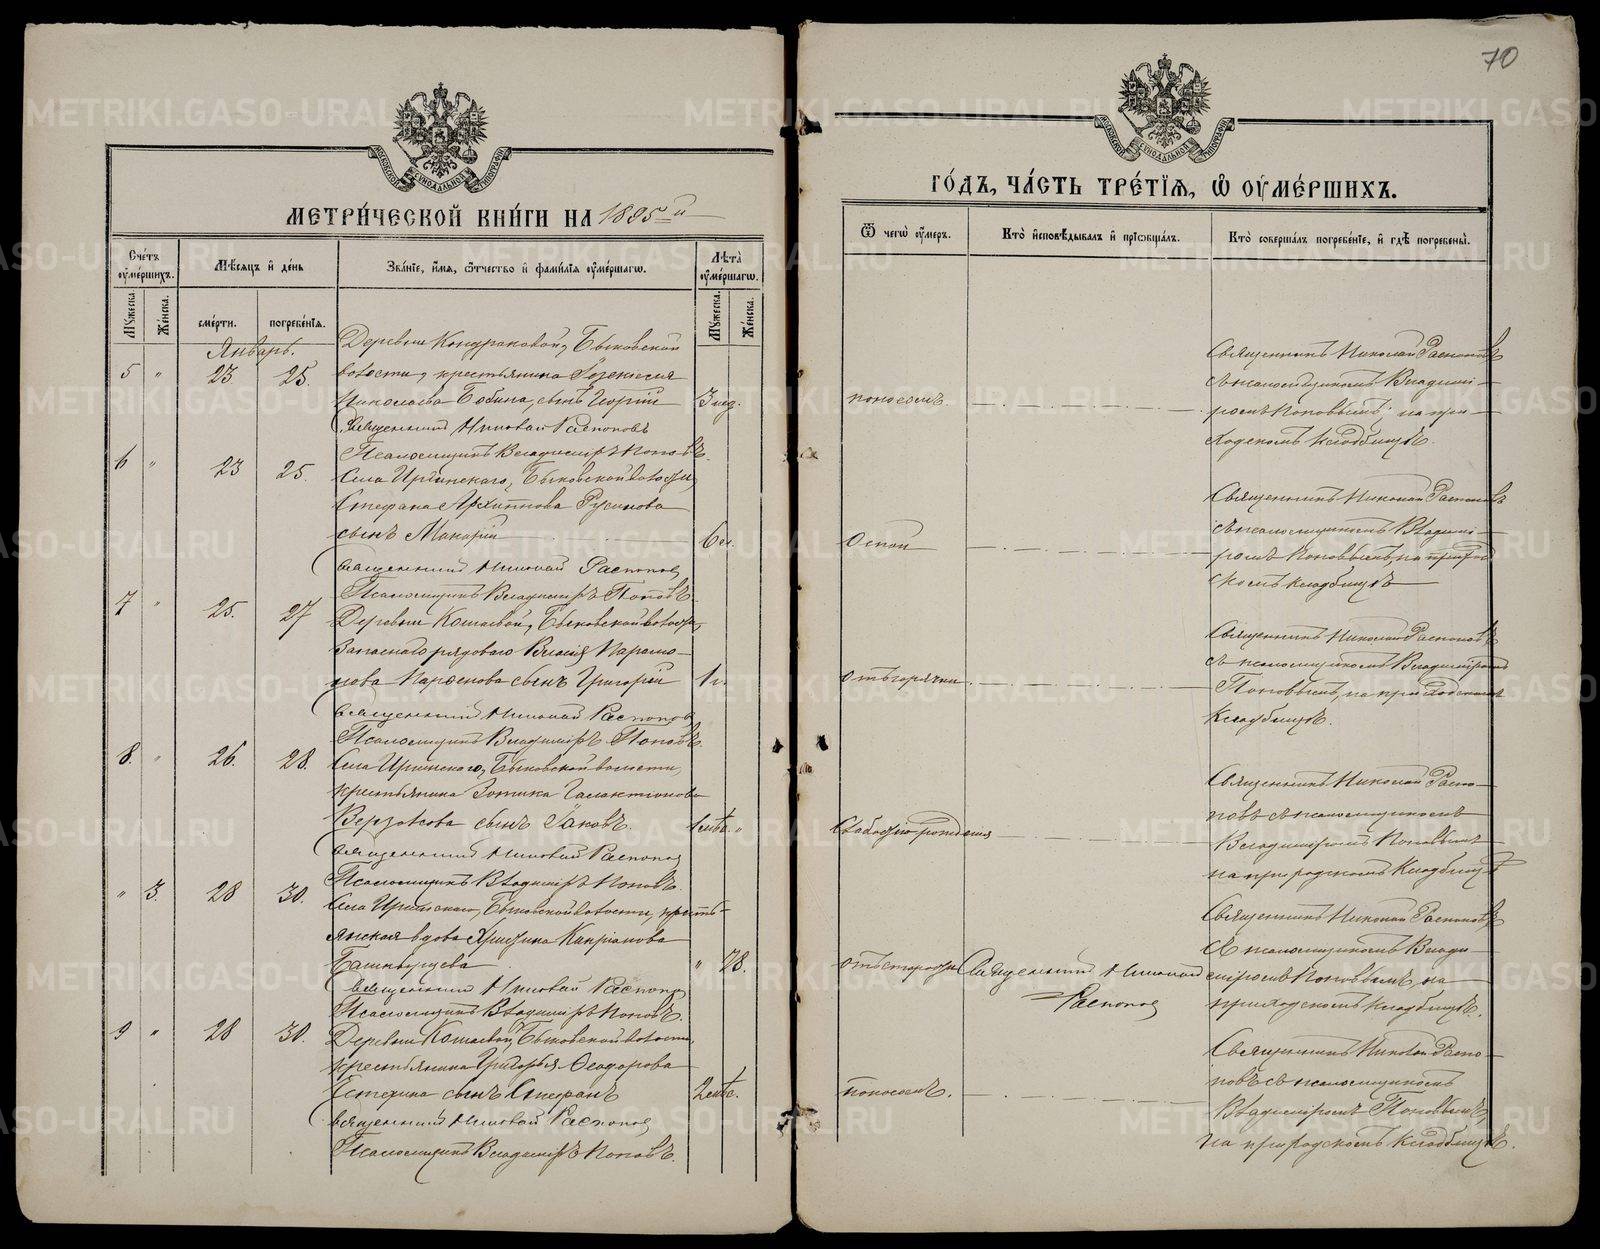 70
МОСКОВСКОЙ СѴНОДАЛЬНОЙ ТИПОГРАФІИ
МОСКОВСКОЙ СѴНОДАЛЬНОЙ ТИПОГРАФІИ
МЕТРИ́ЧЕСКОЙ КНИ́ГИ НА 1895 й
ГО́ДЪ, ЧА́СТЬ ТРЕ́ТІѦ, Ѽ ОУМЕ́РШИХЪ.
Сче́тъ оуме́ршихъ.
Мѣ́сѧцъ и҆ де́нь
Зва́нїе, и҆́мѧ, ѻ҆́тчество и҆ фамѝлїѧ оуме́ршагѡ.
Лѣ́та оуме́ршагѡ.
Му́жеска. Же́нска.
сме́рти. погребе́нїѧ.
Му́жеска. Же́нска.
Ѿ чегѡ̀ оу́меръ.
Кто̀ и҆сповѣ́дывалъ и҆ прїѡбща́лъ.
Кто̀ соверша́лъ погребе́нїе, и҆ гдѣ̀ погребены̀.
Январь.
5 " 23 25.
Деревни Кондраковой, Быковской
волости, крестьянина
Николаева Бабина, сынъ Георгій 3 нед.
Священникъ Николай Распоповъ
Псаломщикъ Владиміръ Поповъ.
поносомъ.
Священникъ Николай Распоповъ
съ псаломщикомъ Владимі-
ромъ Поповымъ; на при-
ходскомъ кладбищѣ.
6 " 23 25.
Села Иргинскаго, Быковской волости,
Стефана Архиппова Русинова
сынъ Макарій 6 м.
Священникъ Николай Распопов
Псаломщикъ Владиміръ Поповъ.
Оспой
Священникъ Николай Распоповъ
съ псаломщикомъ Владимі-
ромъ Поповымъ, на приход-
скомъ кладбищѣ
7 " 25. 27
Деревни Кошаевой, Быковской волости,
Запаснаго рядоваго Власія Парамо-
нова Парѳенова сынъ Григорій 1 г.
Священникъ Николай Распопов
Псаломщикъ Владиміръ Поповъ.
отъ горячки
Священникъ Николай Распоповъ
съ псаломщикомъ Владиміромъ
Поповымъ, на приходскомъ
кладбищѣ.
8. " 26. 28.
Села Иргинскаго, Быковской волости,
крестьянина Зотика Галактіонова
сынъ Іаковъ. 1 мѣс. "
Священникъ Николай Распопов
Псаломщикъ Владиміръ Поповъ.
Слабость рожденія
Священникъ Николай Распо-
повъ съ псаломщикомъ
Владиміромъ Поповымъ
на приходскомъ кладбищѣ
" 3. 28 30.
Села Иргинскаго, Быковской волости, кресть-
янская вдова Христина Кипріанова
Башкурцева " 78.
Священникъ Николай Распопов
Псаломщикъ Владиміръ Поповъ.
отъ старости
Священникъ Николай
Распопов
Священникъ Николай Распоповъ
съ псаломщикомъ Влади-
міромъ Поповымъ, на
приходскомъ кладбищѣ.
9 " 28 30.
Деревни Кошаевой, Быковской волости,
крестьянина Григорья Ѳеодорова
сынъ Стефанъ 2 мѣс.
Священникъ Николай Распопов
Псаломщикъ Владиміръ Поповъ.
поносомъ.
Священникъ Николай Распо-
повъ съ псаломщикомъ
Владиміромъ Поповымъ
на приходскомъ кладбищѣ.
METRIKI.GASO-URAL.RU